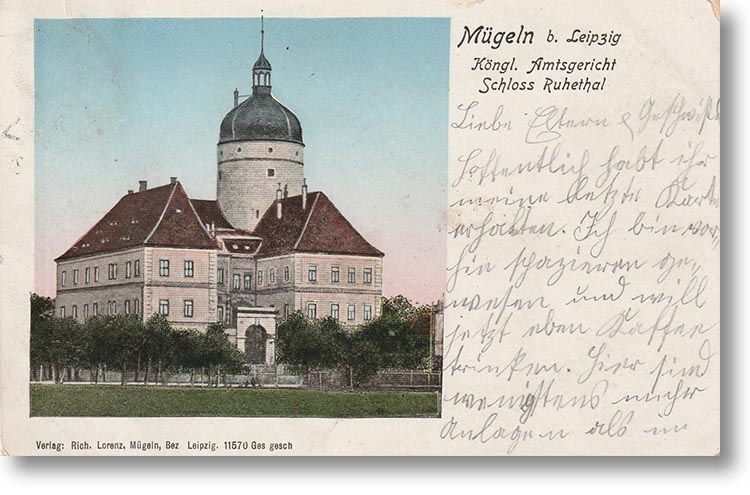 Mügeln b. Leipzig
Köngl. Amtsgericht
Schloss Ruhethal
Liebe Eltern & Geschwist
Hoffentlich habt ihr
meine letzte Karte
erhalten. Ich bin vor-
hin spazieren ge-
wesen und will
jetzt eben Kaffee
trinken. Hier sind
wenigstens mehr
Anlagen als im
Verlag: Rich. Lorenz, Mügeln, Bez Leipzig. 11570 Ges gesch